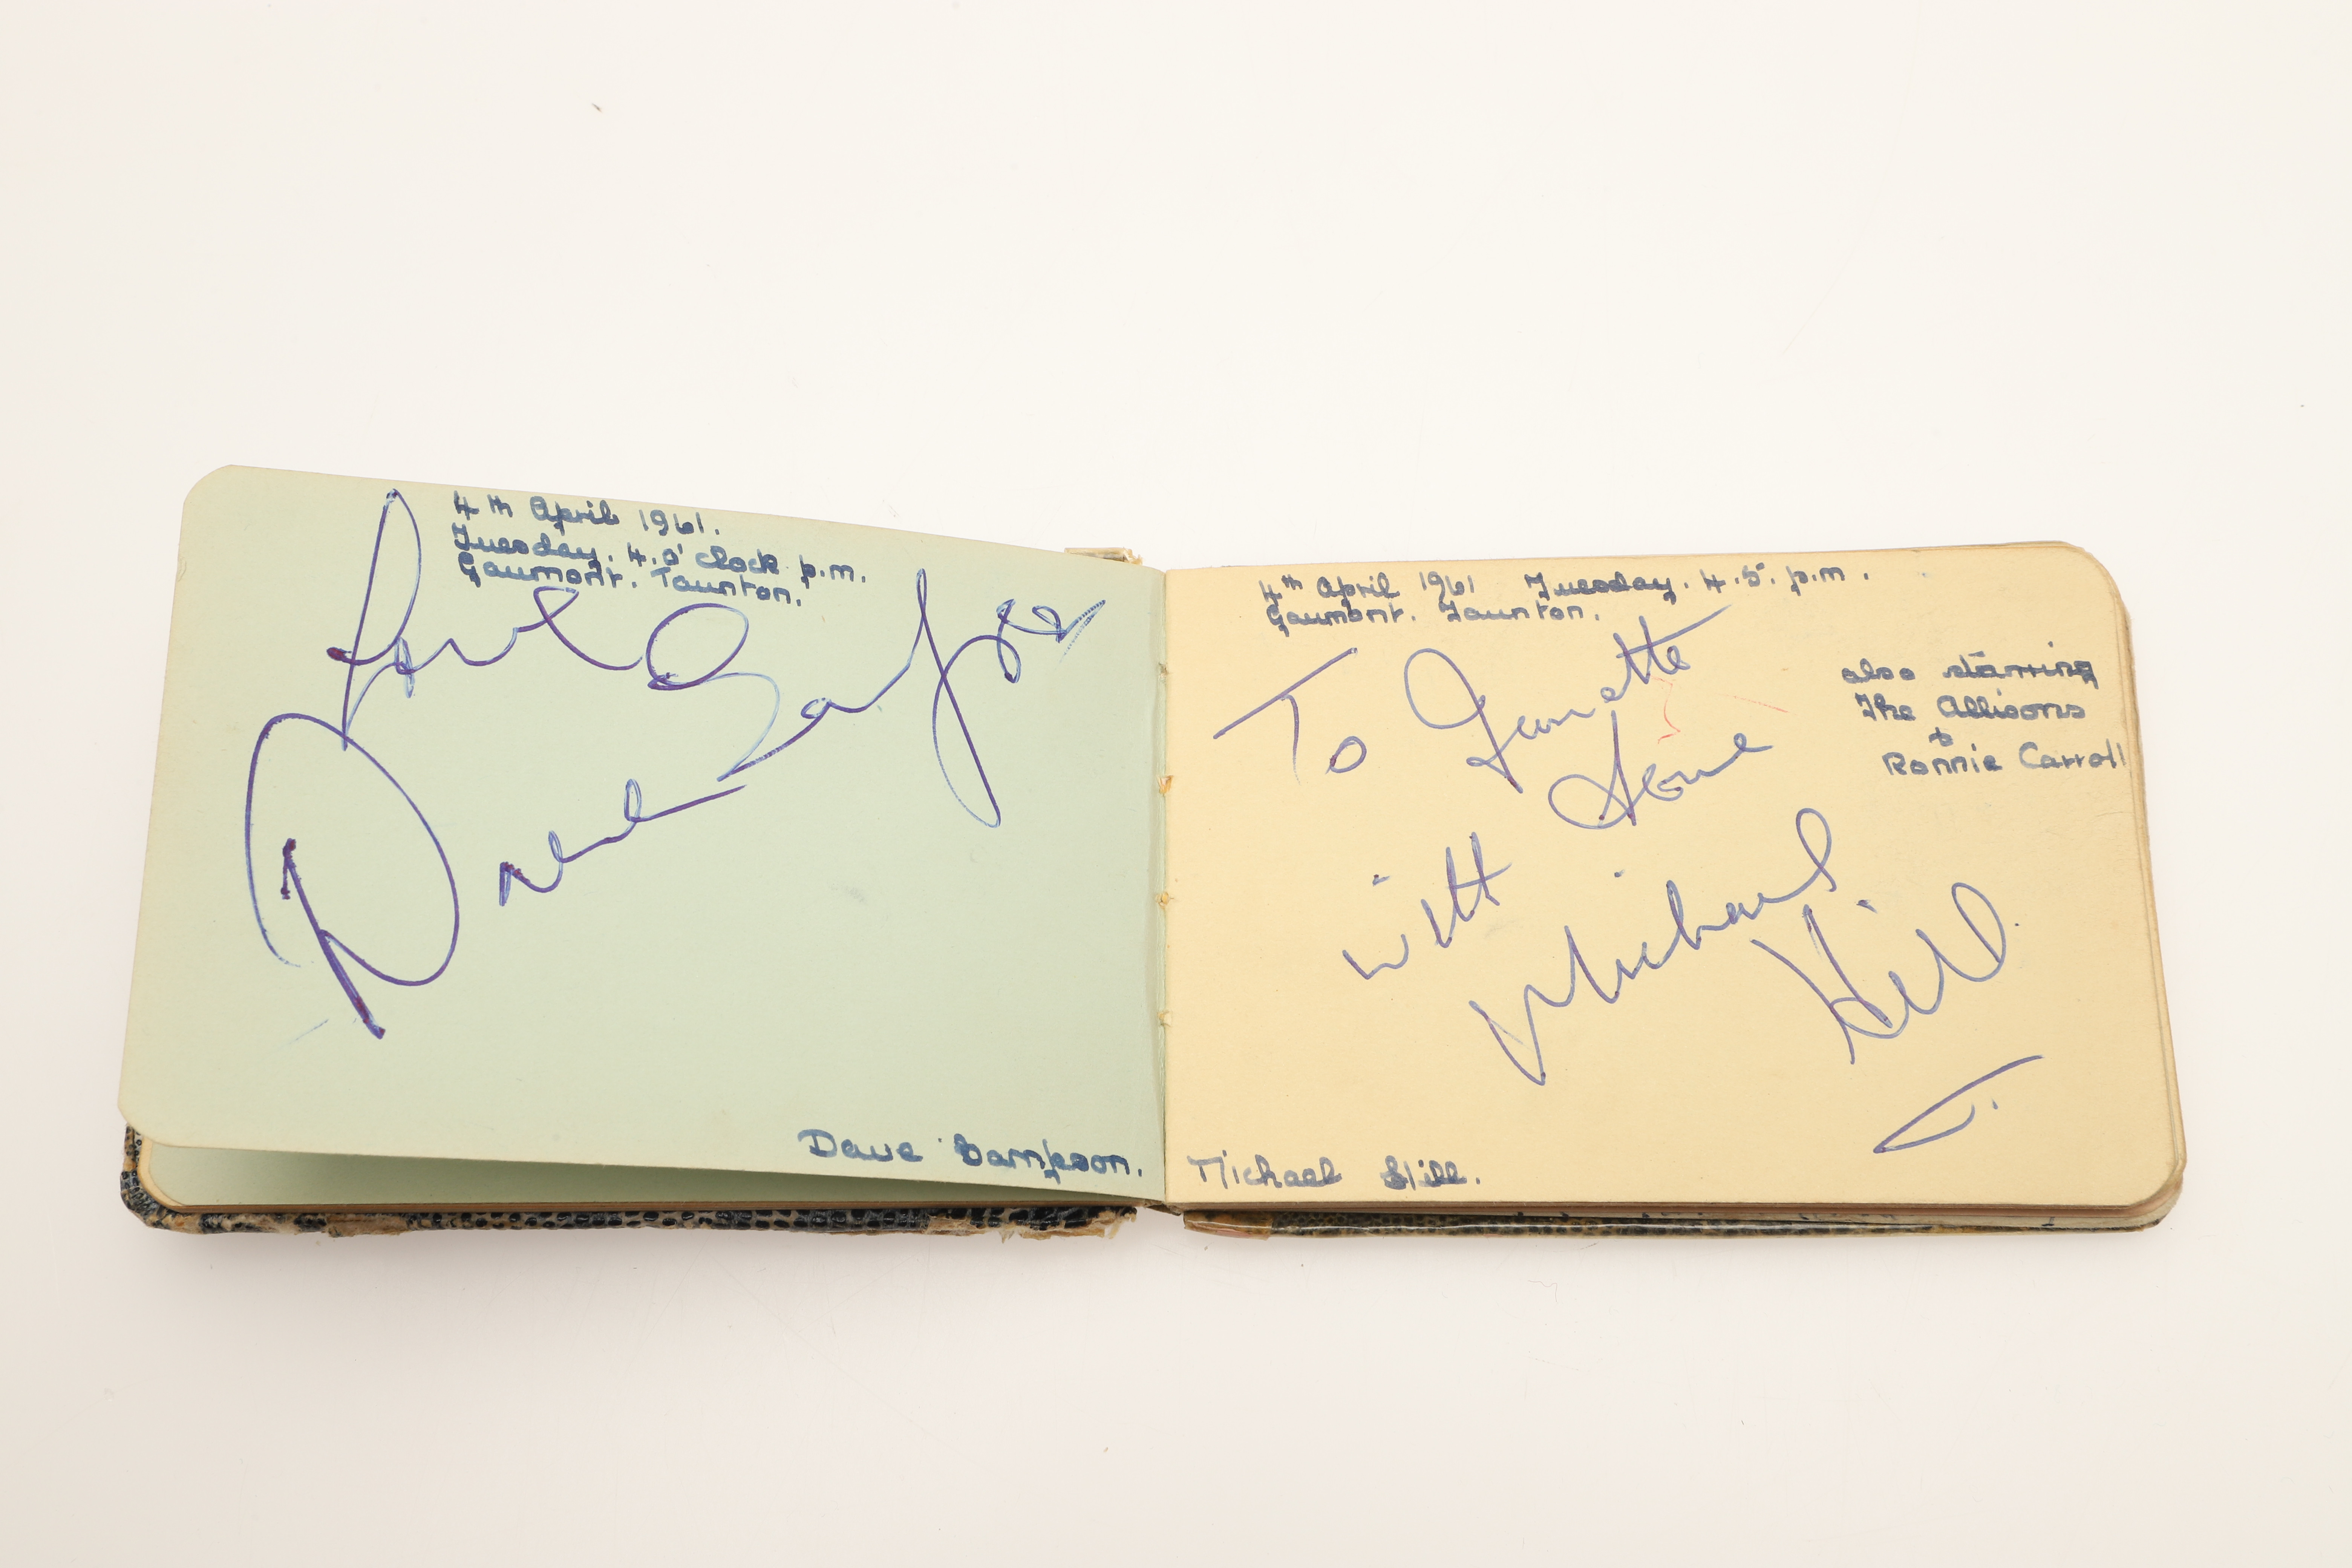 4th April 1961.
Tuesday. 4.o'clock p.m.
Gaumont. Taunton.
Love
Dave Sampson
Dave Sampson.
4th April 1961 Tuesday. 4.5. p.m.
Gaumont. Taunton.
also starring
The Allisons
&
Ronnie Carroll
To Jeanette
with Love
Michael
Hill
Michael Hill.